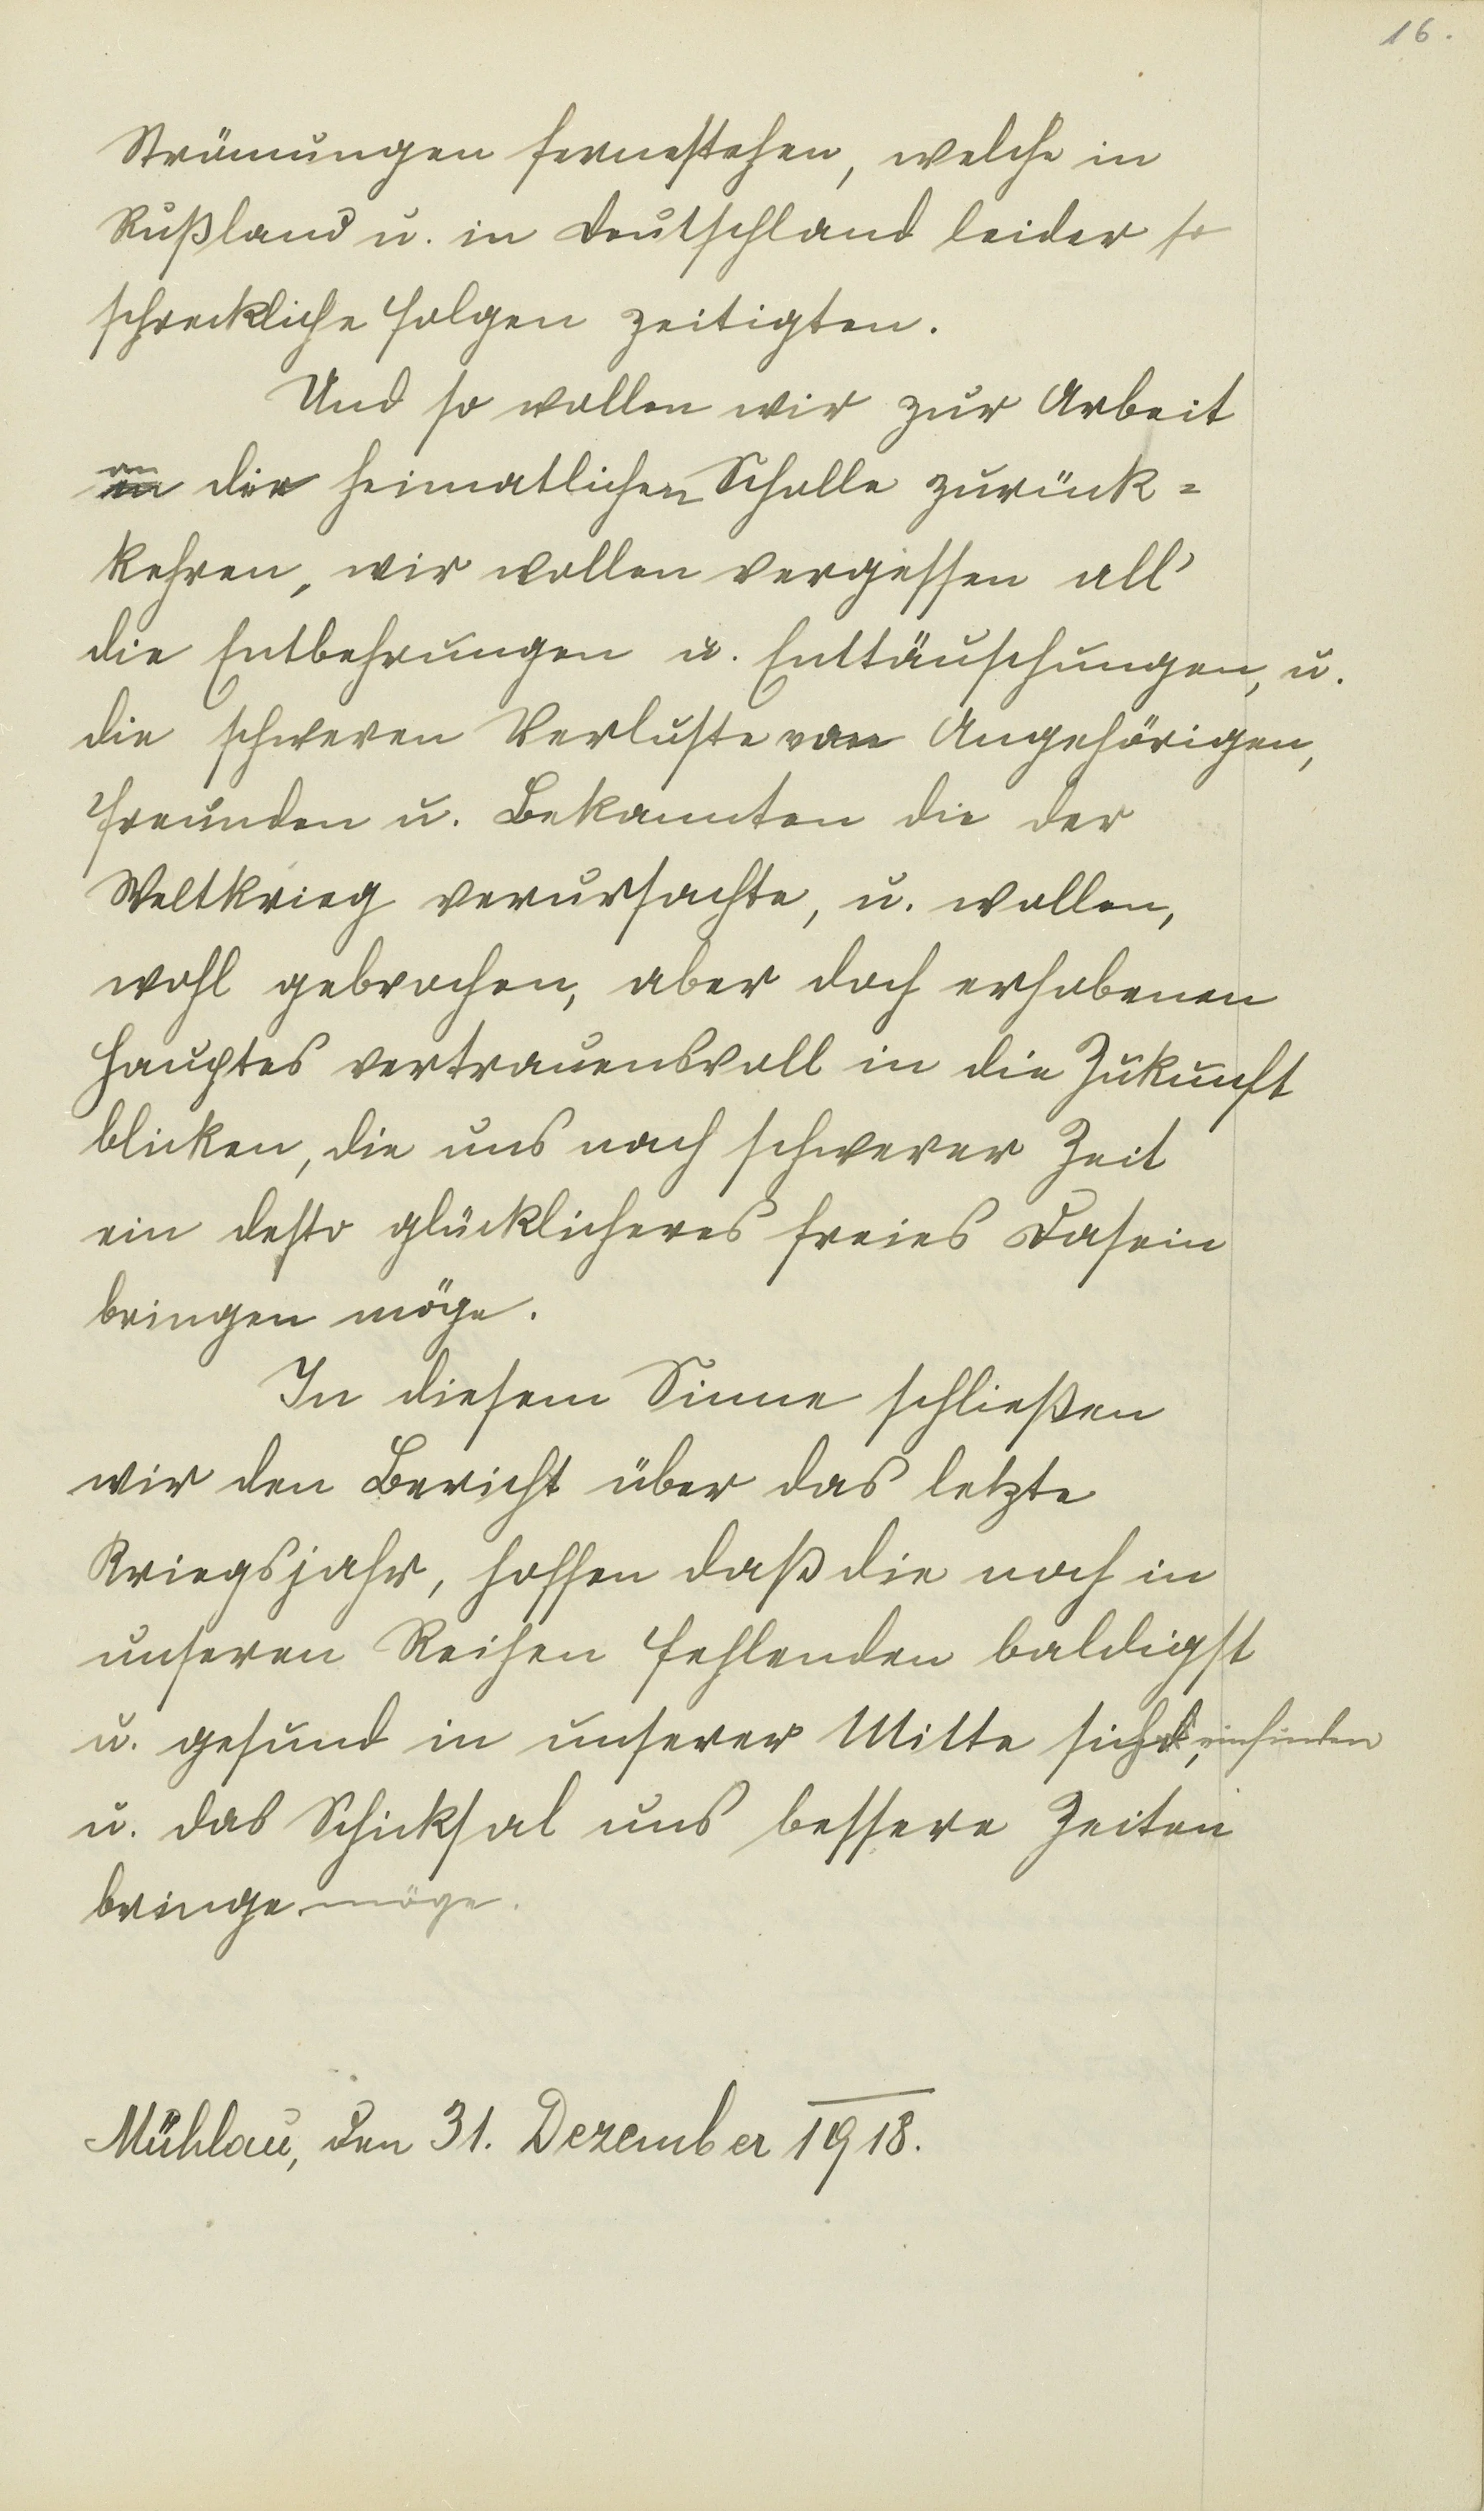 16.
Strömungen fernestehen, welche in
Rußland u. in Deutschland leider so
schreckliche Folgen zeitigten.
Und so wollen wir zur Arbeit
an der heimatlichen Scholle zurück=
kehren, wir wollen vergessen all'
die Entbehrungen u. Enttäuschungen, u.
die schweren Verluste von Angehörigen,
Freunden u. Bekannten die der
Weltkrieg verursachte, u. wollen,
wohl gebrochen, aber doch erhobenen
Hauptes vertrauensvoll in die Zukunft
blicken, die uns nach schwerer Zeit
ein desto glücklicheres freies Dasein
bringen möge.
In diesem Sinne schließen
wir den Bericht über das letzte
Kriegsjahr, hoffen daß die noch in
unseren Reihen Fehlenden baldigst
u. gesund in unserer Mitte sich einfinden
u. das Schicksal uns bessere Zeiten
bringe möge.
Mühlau, den 31. Dezember 1918.